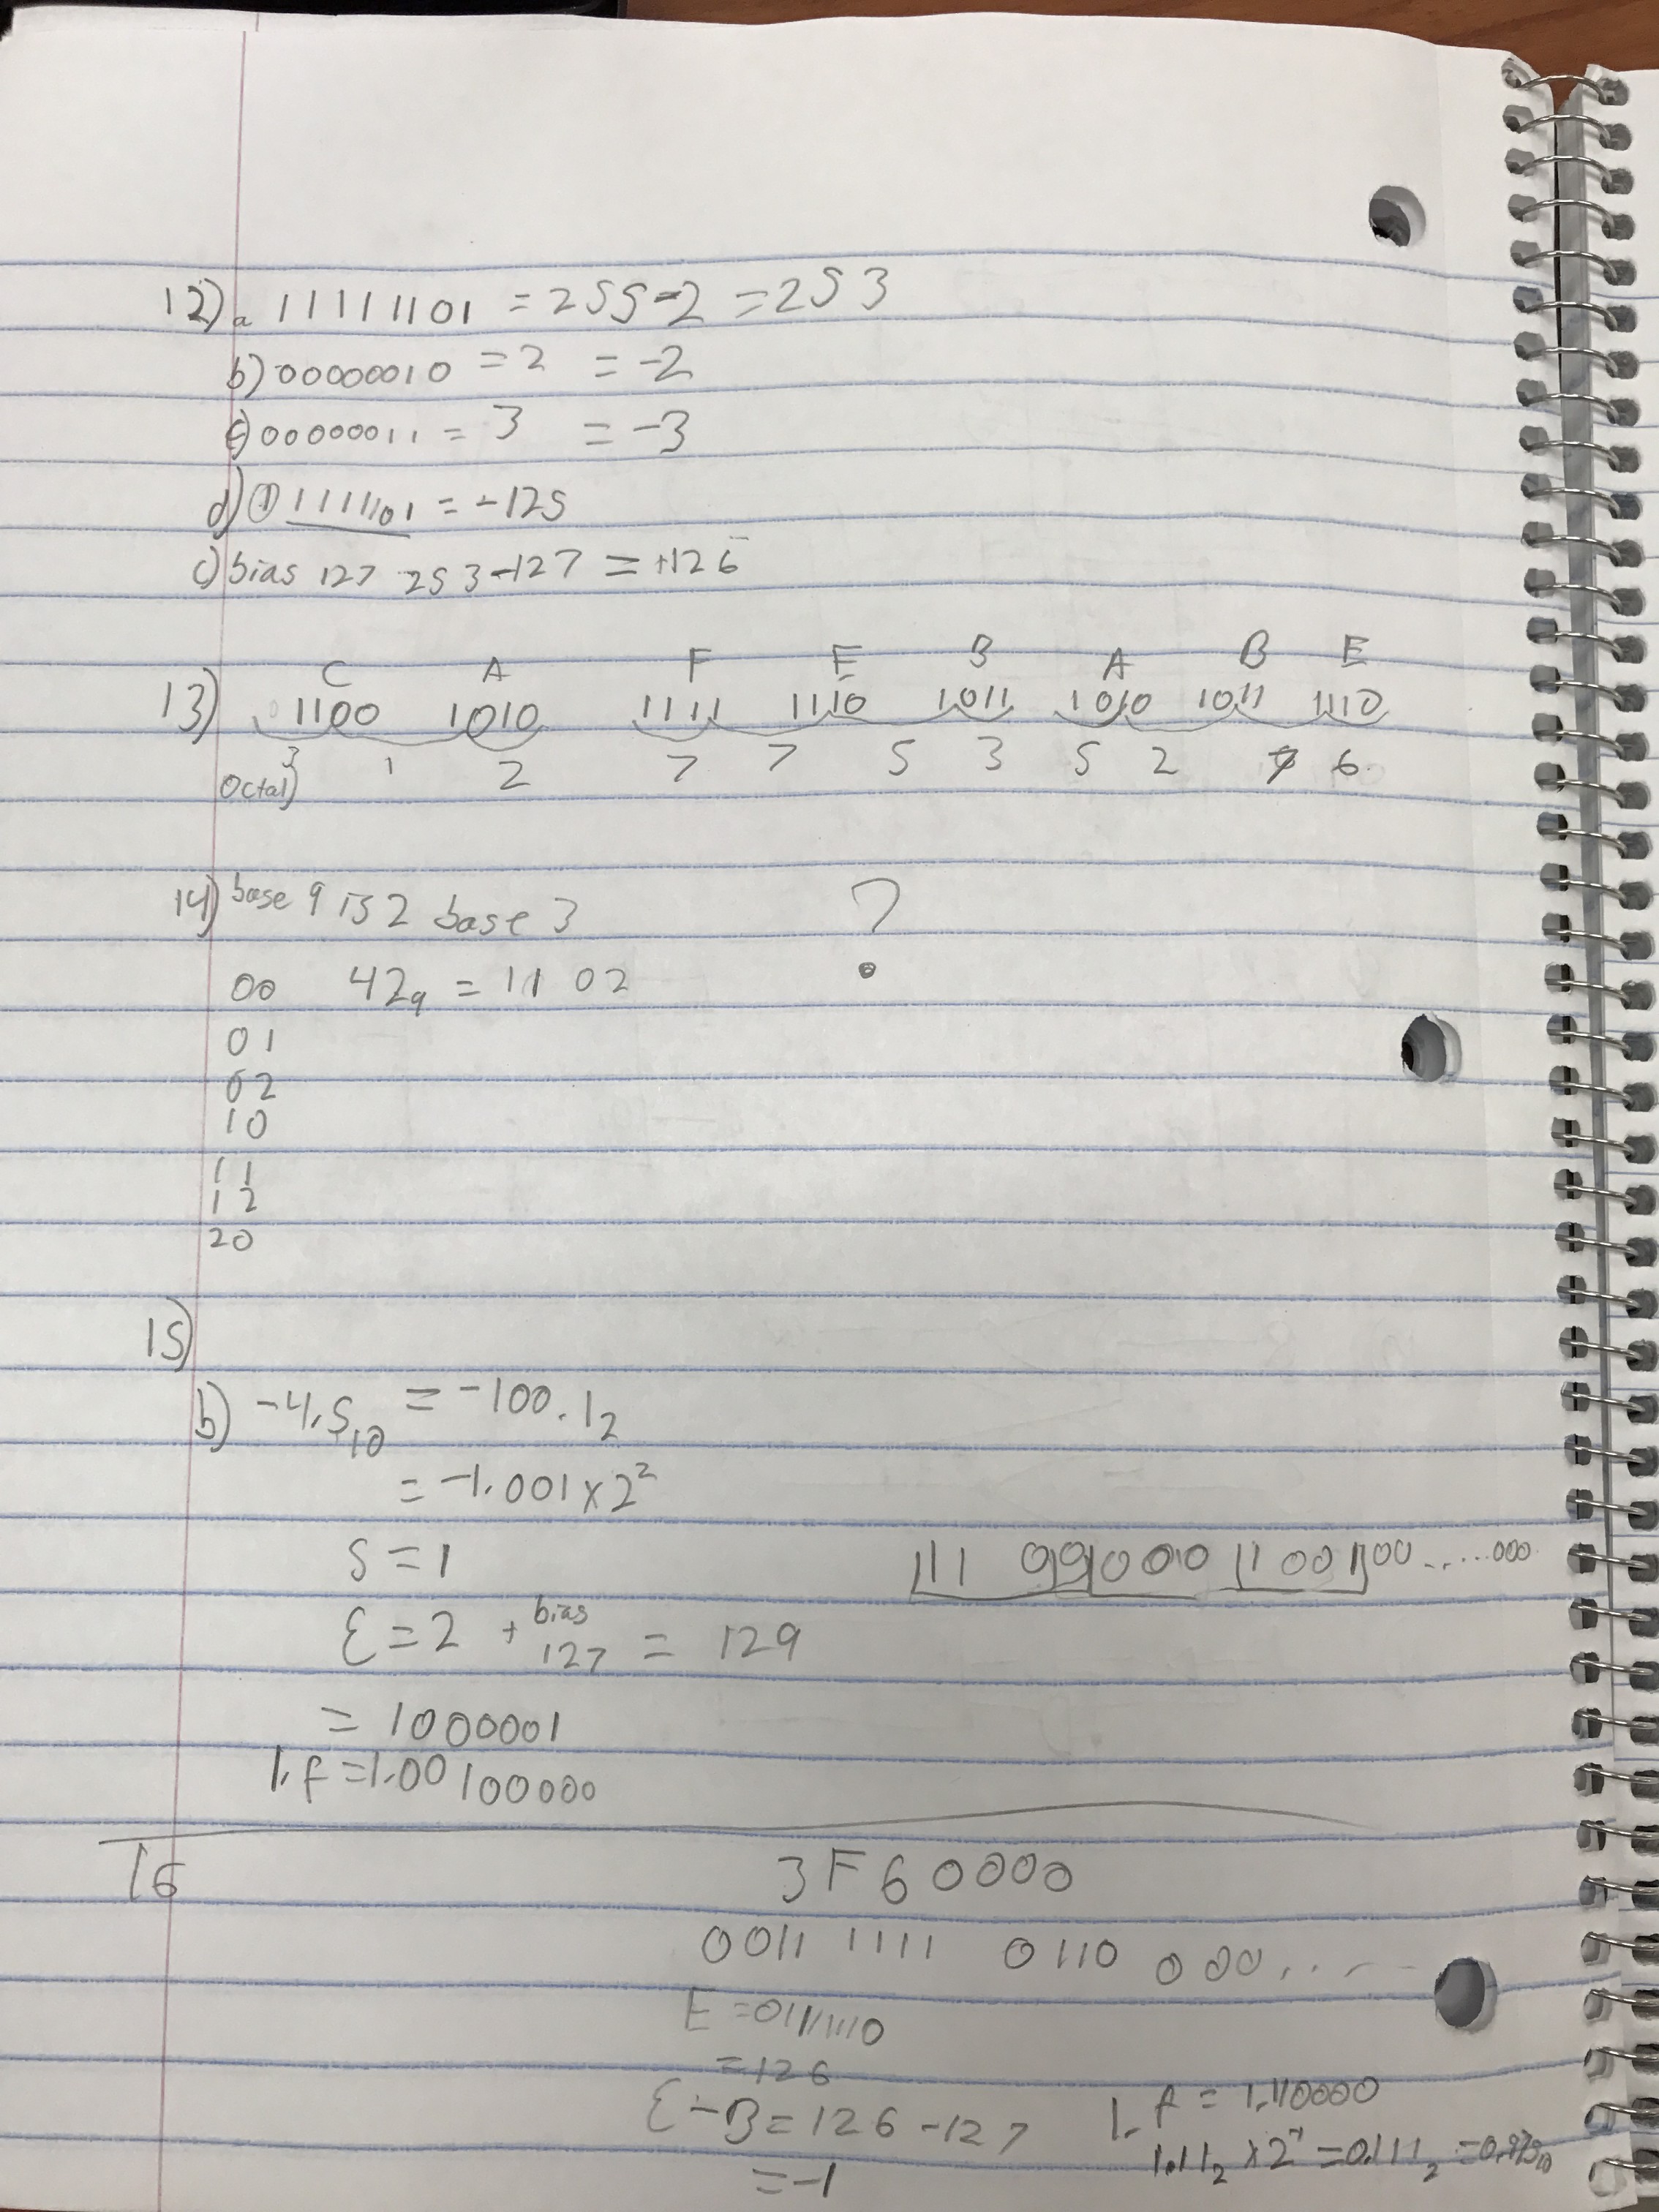 12) a 11111101 = 255-2 = 253
b) 00000010 = 2 = -2
c) 00000011 = 3 = -3
d) 1 1111101 = -125
c) bias 127 253-127 = +126
C A F E B A B E
13) 1100 1010 1111 1110 1011 1010 1011 1110
3 1 2 7 7 5 3 5 2 7 6
Octal)
14) base 9 is 2 base 3 ?
00 42₉ = 11 02
01
02
10
11
12
20
15)
b) -4.5₁₀ = -100.1₂
= -1.001 x 2²
S = 1
111 000000 11001 00.....000
E = 2 + bias 127 = 129
= 1000001
1.f = 1.00100000
16 3F60000
0011 1111 0110 000....
E = 01111110
= 126
E - B = 126 - 127
= -1
1.f = 1.110000
1.11₂ x 2⁻¹ = 0.111₂ =